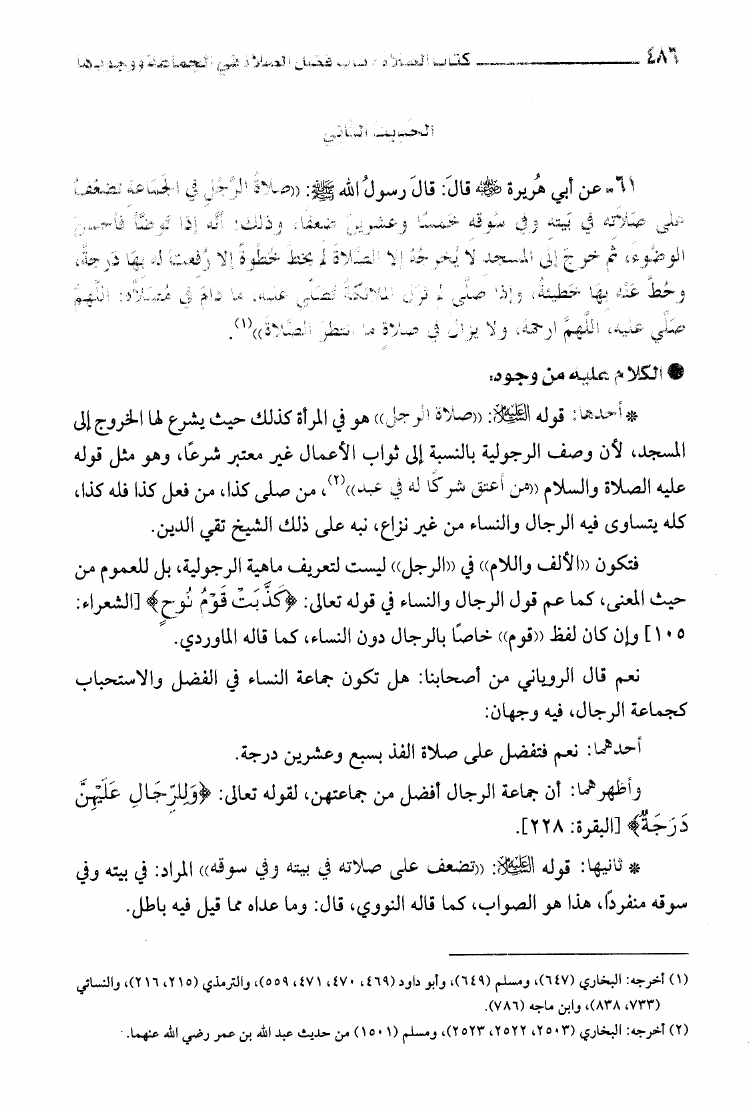 ٤٨٦ كتاب الصلاة / باب فضل الصلاة في الجماعة ووجوبها
الحديث الثاني
٦١ - عن أبي هُريرة ﵁ قالَ: قالَ رسولُ الله ﷺ: ((صلاةُ الرَّجُلِ في الجَمَاعَةِ تضعُفُ
على صلاتِه في بَيته وفي سُوقه خمسًا وعشرينَ ضعفًا، وذلكَ: أنَّه إذا تَوضَّأ فأحسنَ
الوضُوءَ، ثم خرجَ إلَى المسجدِ لا يُخرجُهُ إلا الصَّلاةُ لم يخطُ خُطوةً إلا رُفعت له بهَا دَرجةٌ،
وحُطَّ عَنْه بهَا خَطيئةٌ، وإذا صلَّى لم تزل الملائكةُ تُصلِّي عليه، ما دامَ في مُصَلَّاه: اللَّهمَّ
صَلِّي عليه، اللَّهمَّ ارحمهُ، ولا يزالُ في صلاةٍ ما انتظرَ الصَّلاةَ))(١).
● الكلام عليه من وجوه:
* أحدها: قوله ﵇: ((صلاة الرجل)) هو في المرأة كذلك حيث يشرع لها الخروج إلى
المسجد، لأن وصف الرجولية بالنسبة إلى ثواب الأعمال غير معتبر شرعًا، وهو مثل قوله
عليه الصلاة والسلام ((من أعتق شركًا له في عبد))(٢)، من صلى كذا، من فعل كذا فله كذا،
كله يتساوى فيه الرجال والنساء من غير نزاع، نبه على ذلك الشيخ تقي الدين.
فتكون ((الألف واللام)) في ((الرجل)) ليست لتعريف ماهية الرجولية، بل للعموم من
حيث المعنى، كما عم قول الرجال والنساء في قوله تعالى: ﴿كَذَّبَتْ قَوْمُ نُوحٍ﴾ [الشعراء:
١٠٥] وإن كان لفظ ((قوم)) خاصًا بالرجال دون النساء، كما قاله الماوردي.
نعم قال الروياني من أصحابنا: هل تكون جماعة النساء في الفضل والاستحباب
كجماعة الرجال، فيه وجهان:
أحدهما: نعم فتفضل على صلاة الفذ بسبع وعشرين درجة.
وأظهرهما: أن جماعة الرجال أفضل من جماعتهن، لقوله تعالى: ﴿وَلِلرِّجَالِ عَلَيْهِنَّ
دَرَجَةٌ﴾ [البقرة: ٢٢٨].
* ثانيها: قوله ﵇: ((تضعف على صلاته في بيته وفي سوقه)) المراد: في بيته وفي
سوقه منفردًا، هذا هو الصواب، كما قاله النووي، قال: وما عداه مما قيل فيه باطل.
(١) أخرجه: البخاري (٦٤٧)، ومسلم (٦٤٩)، وأبو داود (٤٦٩، ٤٧٠، ٤٧١، ٥٥٩)، والترمذي (٢١٥، ٢١٦)، والنسائي
(٧٣٣، ٨٣٨)، وابن ماجه (٧٨٦).
(٢) أخرجه: البخاري (٢٥٠٣، ٢٥٢٢، ٢٥٢٣)، ومسلم (١٥٠١) من حديث عبد الله بن عمر رضي الله عنهما.